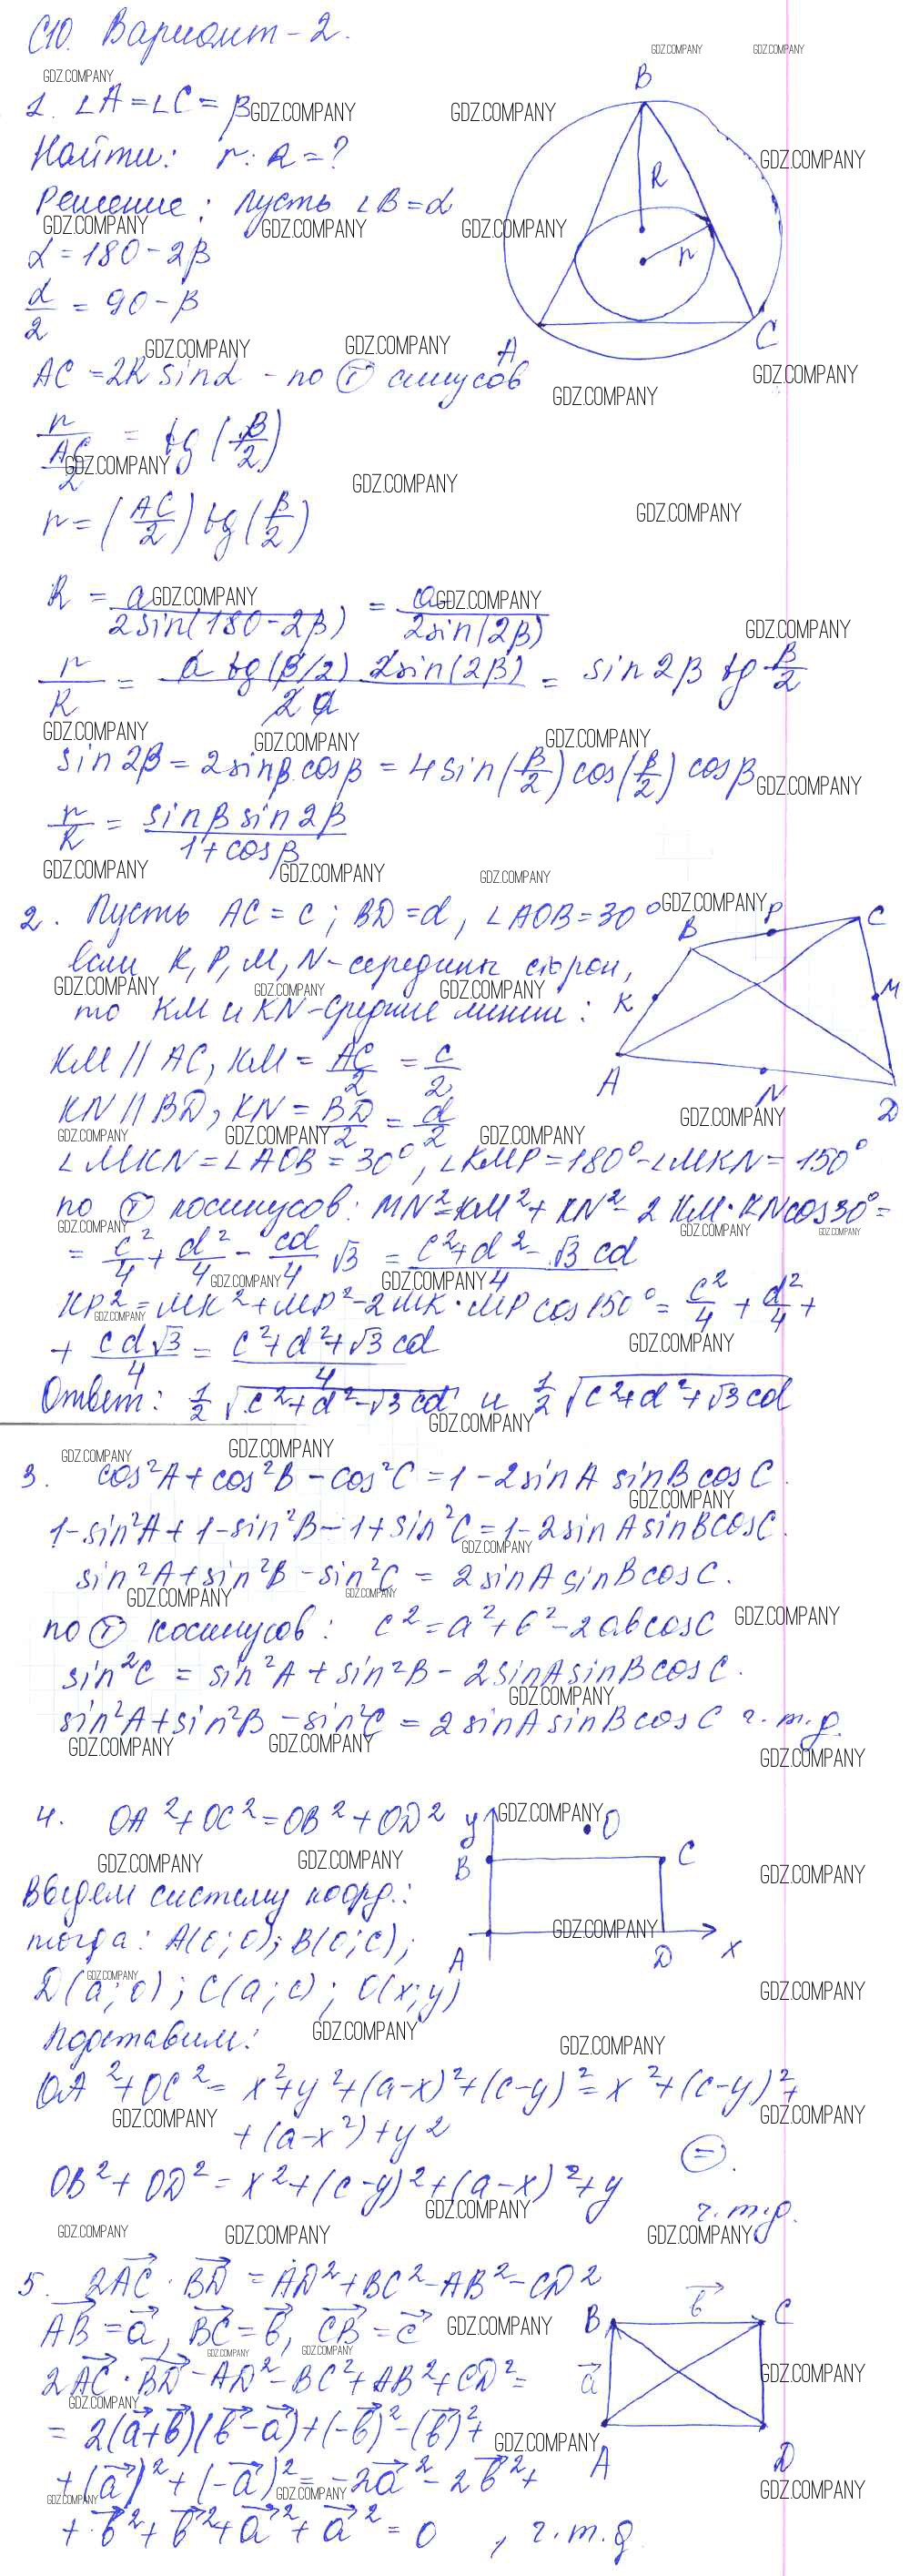 С10. Вариант-2.
1. ∠A=∠C=β
Найти: r:R=?
Решение: пусть ∠B=α
α=180-2β
α/2 = 90-β
AC=2R sinα - по Ⓣ синусов
r/(AC/2) = tg(β/2)
r=(AC/2) tg(β/2)
R = a/(2sin(180-2β)) = a/(2sin(2β))
r/R = (a tg(β/2) 2sin(2β))/(2a) = sin2β tg β/2
sin2β=2sinβ cosβ=4sin(β/2)cos(β/2) cosβ
r/R = (sinβ sin2β)/(1+cosβ)
B
R
r
A
C
2. Пусть AC=c; BD=d, ∠AOB=30°
если K,P,M,N-середины сторон,
то KM и KN-средние линии:
KM//AC, KM=AC/2=c/2
KN//BD, KN=BD/2=d/2
∠MKN=∠AOB=30°, ∠KMP=180°-∠MKN=150°
по Ⓣ косинусов: MN²=KM²+KN²-2KM·KNcos30°=
= c²/4+d²/4-cd/4 √3 = (c²+d²-√3cd)/4
KP²=MK²+MP²-2MK·MPcos150°=c²/4+d²/4+
+ cd√3/4 = (c²+d²+√3cd)/4
Ответ: 1/2 √(c²+d²-√3cd) и 1/2 √(c²+d²+√3cd)
B
P
C
K
M
A
N
D
3. cos²A+cos²B-cos²C=1-2sinA sinB cosC.
1-sin²A+1-sin²B-1+sin²C=1-2sinAsinBcosC.
sin²A+sin²B-sin²C = 2sinAsinBcosC.
по Ⓣ косинусов: c²=a²+b²-2abcosC
sin²C = sin²A+sin²B-2sinAsinBcosC.
sin²A+sin²B-sin²C=2sinAsinBcosC ч.т.д.
4. OA²+OC²=OB²+OD²
Введем систему коорд.:
тогда: A(0;0); B(0;c);
D(a;0); C(a;c); O(x;y)
Подставим:
OA²+OC²= x²+y²+(a-x)²+(c-y)²=x²+(c-y)²+
+(a-x²)+y²
=
OB²+OD²=x²+(c-y)²+(a-x)²+y
ч.т.д.
y
O
B
C
A
D
x
5. 2AC·BD=AD²+BC²-AB²-CD²
AB=a, BC=b, CB=c
2AC·BD-AD²-BC²+AB²+CD²=
= 2(a+b)(b-a)+(-b)²-(b)²+
+(a)²+(-a)²=-2a²-2b²+
+b²+b²+a²+a²=0, ч.т.д.
b
B
C
a
A
D
GDZ.COMPANY